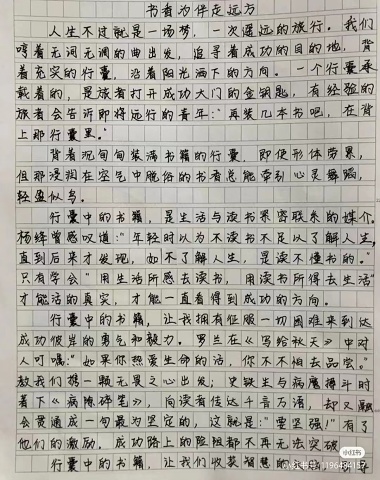 书香为伴走远方
人生不过就是一场梦，一次遥远的旅行。我们
哼着无词无调的曲出发，追寻着成功的目的地，背
着充实的行囊，沿着阳光洒下的方向。一个行囊承
载着的，是旅者打开成功大门的金钥匙，有经验的
旅者会告诉即将远行的青年：“再装几本书吧，在背
上那行囊里。”
背着沉甸甸装满书籍的行囊，即使形体劳累，
但那浸润在空气中脱俗的书香总能牵引心灵舞蹈，
轻盈似鸟。
行囊中的书籍，是生活与读书紧密联系的媒介。
杨绛曾感叹道：“年轻时以为不读书不足以了解人生，
直到后来才发现，如不了解人生，是读不懂书的。”
只有学会“用生活所感去读书，用读书所得去生活”
才能活的真实，才能一直看得到成功的方向。
行囊中的书籍，让我拥有征服一切困难来到达
成功彼岸的勇气和毅力。罗兰在《写给秋天》中对
人叮嘱：“如果你热爱生命的话，你不不怕去品尝。”
教我们携一颗无畏之心出发；史铁生与病魔搏斗时
着下《病隙碎笔》，向读者传达千言万语，却又融
会贯通成一句最为坚定的，这就是：“要坚强！”有了
他们的激励，成功路上的险阻都不再无法突破
行囊中的书籍，让我们收获智慧的
小红书
小红书号：1196484157